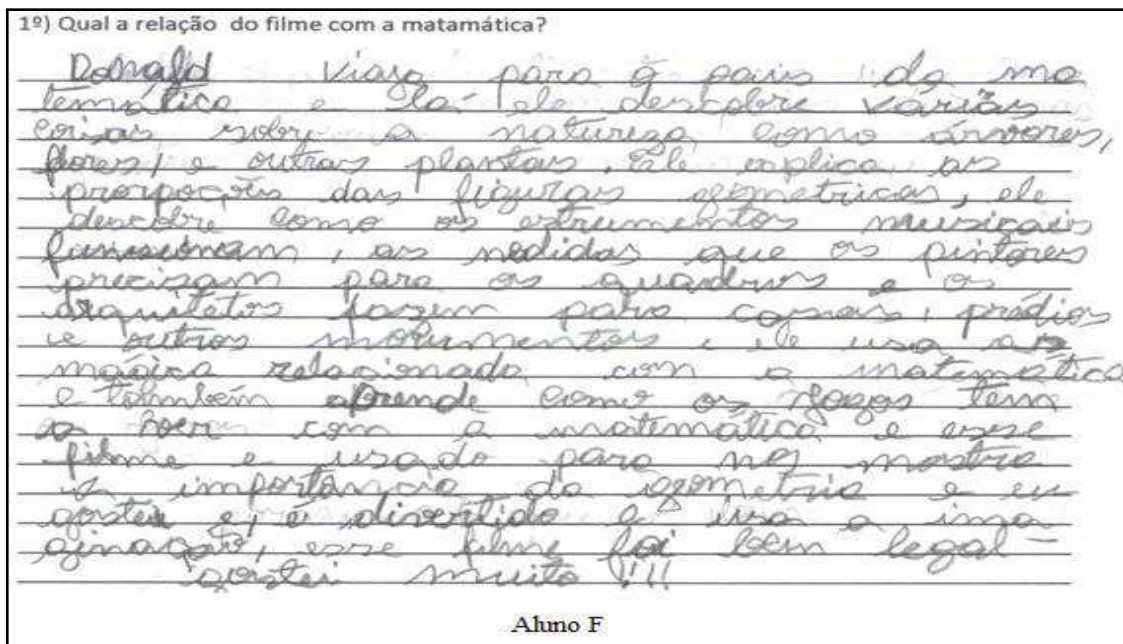 1º) Qual a relação do filme com a matamática?
Donald viaja para o pais da ma
temática e la ele descobre várias
coisas sobre a natureza como árvores,
flores, e outras plantas. Ele explica as
prorpoções das figuras geometricas, ele
descobre como os estrumentos musicais
funcionam, as medidas que os pintores
precisam para os quadros e os
arquitetos fazem para casas, prédios
e outros monumentos, ele usa a
mágica relacionada com a matemática
e também aprende como os jogos tem
a ver com a matemática e esse
filme e usado para nos mostra
a importância da geometria e eu
gostei e, é divertido e usa a ima
ginação, esse filme foi bem legal
gostei muito !!!
Aluno F